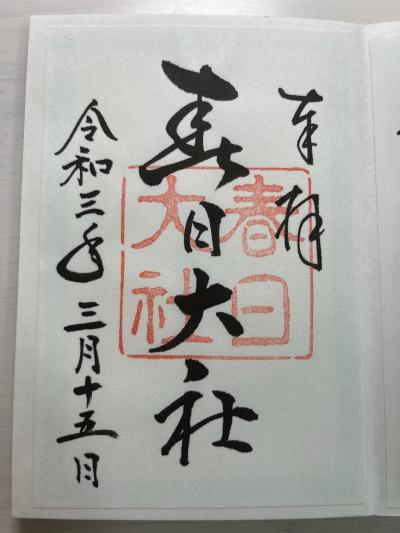 奉拝
春日大社
春日
大社
令和三年三月十五日